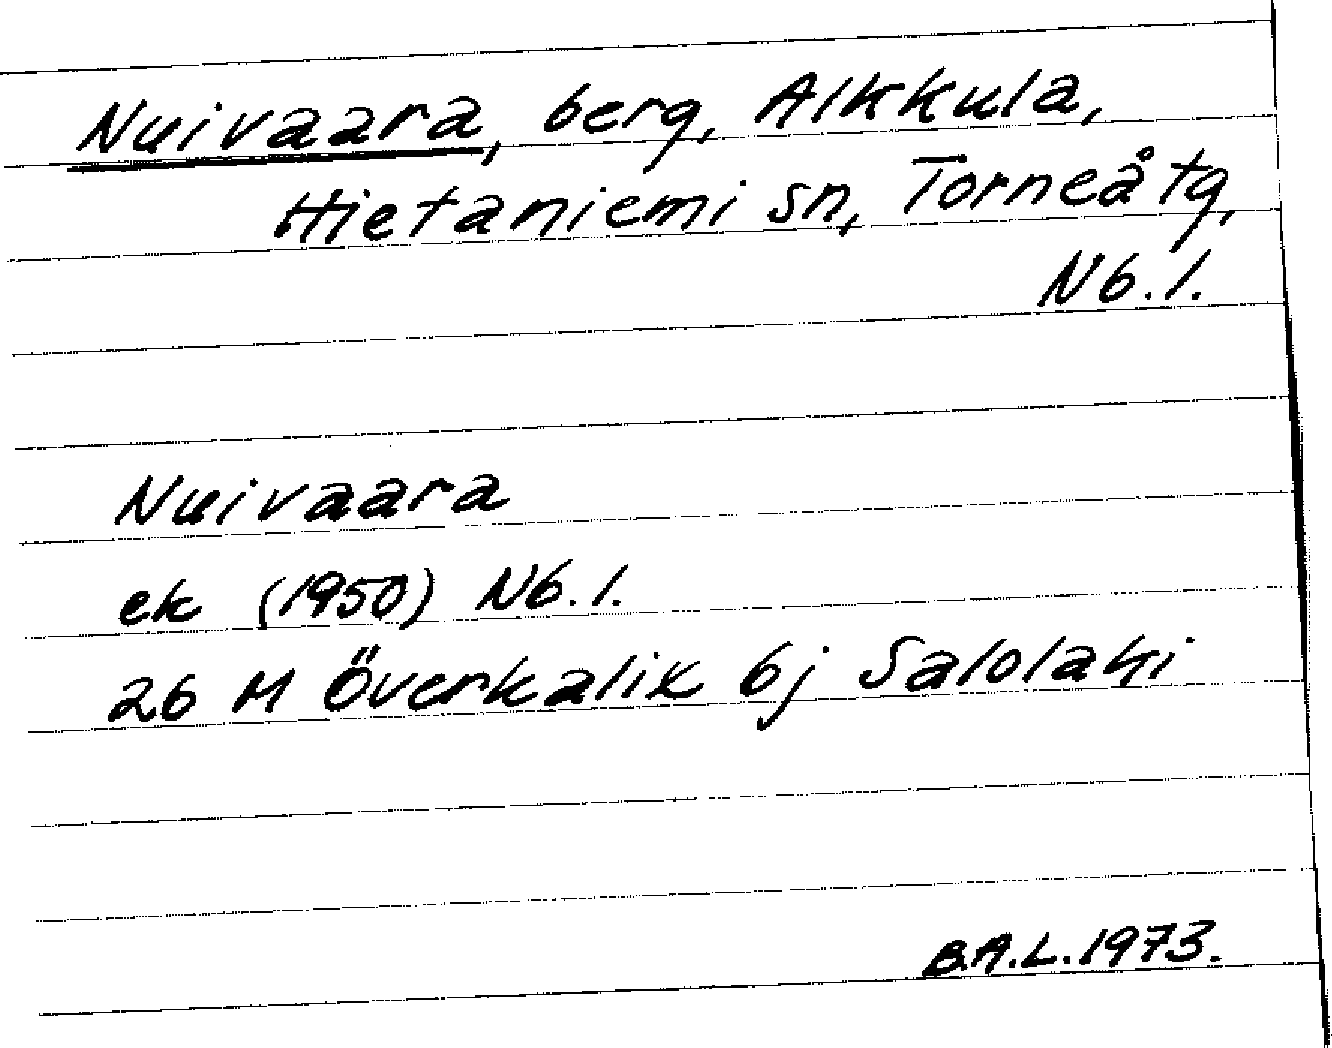 Nuivaara, berg, Alkkula,
Hietaniemi sn, Torneå tg,
Nb. l.
Nuivaara
ek (1950) Nb. l.
26 M Överkalix 6j Salolahi
B.A.L. 1973.